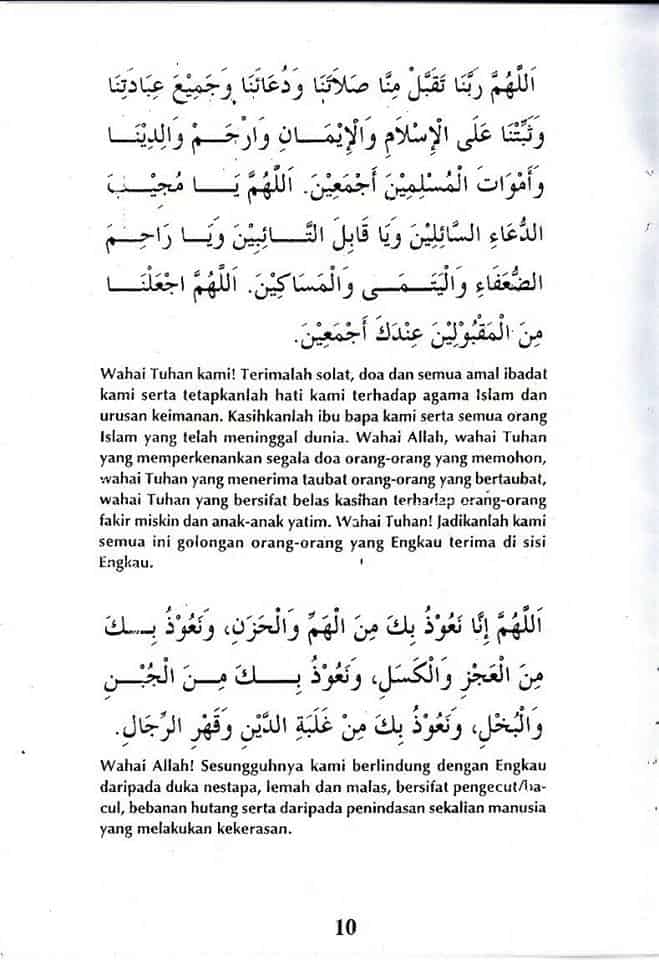 اَللَّهُمَّ رَبَّنَا تَقَبَّلْ مِنَّا صَلَاتَنَا وَدُعَائَنَا وَجَمِيْعَ عِبَادَتِنَا
وَثَبِّتْنَا عَلَى الْإِسْلَامِ وَالْإِيْمَـــانِ وَارْحَـــمْ وَالِدِيْنَـــا
وَأَمْوَاتَ الْمُسْلِمِيْنَ أَجْمَعِيْنَ. اَللَّهُمَّ يَـــا مُجِيْـــبَ
الدُّعَاءِ السَّائِلِيْنَ وَيَا قَابِلَ التَّـــائِبِيْنَ وَيَـــا رَاحِـــمَ
الضُّعَفَاءِ وَالْيَتَـــمَـــى وَالْمَسَاكِيْنَ. اَللَّهُمَّ اجْعَلْنَـــا
مِنَ الْمَقْبُوْلِيْنَ عِنْدَكَ أَجْمَعِيْنَ.
Wahai Tuhan kami! Terimalah solat, doa dan semua amal ibadat
kami serta tetapkanlah hati kami terhadap agama Islam dan
urusan keimanan. Kasihkanlah ibu bapa kami serta semua orang
Islam yang telah meninggal dunia. Wahai Allah, wahai Tuhan
yang memperkenankan segala doa orang-orang yang memohon,
wahai Tuhan yang menerima taubat orang-orang yang bertaubat,
wahai Tuhan yang bersifat belas kasihan terhadap orang-orang
fakir miskin dan anak-anak yatim. Wahai Tuhan! Jadikanlah kami
semua ini golongan orang-orang yang Engkau terima di sisi
Engkau.
اَللَّهُمَّ إِنَّا نَعُوْذُ بِكَ مِنَ الْهَمِّ وَالْحَزَنِ، وَنَعُوْذُ بِـــكَ
مِنَ الْعَجْزِ وَالْكَسَلِ، وَنَعُوْذُ بِـــــكَ مِـــنَ الْجُبْـــنِ
وَالْبُخْلِ، وَنَعُوْذُ بِكَ مِنْ غَلَبَةِ الدَّيْنِ وَقَهْرِ الرِّجَالِ.
Wahai Allah! Sesungguhnya kami berlindung dengan Engkau
daripada duka nestapa, lemah dan malas, bersifat pengecut/ba-
cul, bebanan hutang serta daripada penindasan sekalian manusia
yang melakukan kekerasan.
10